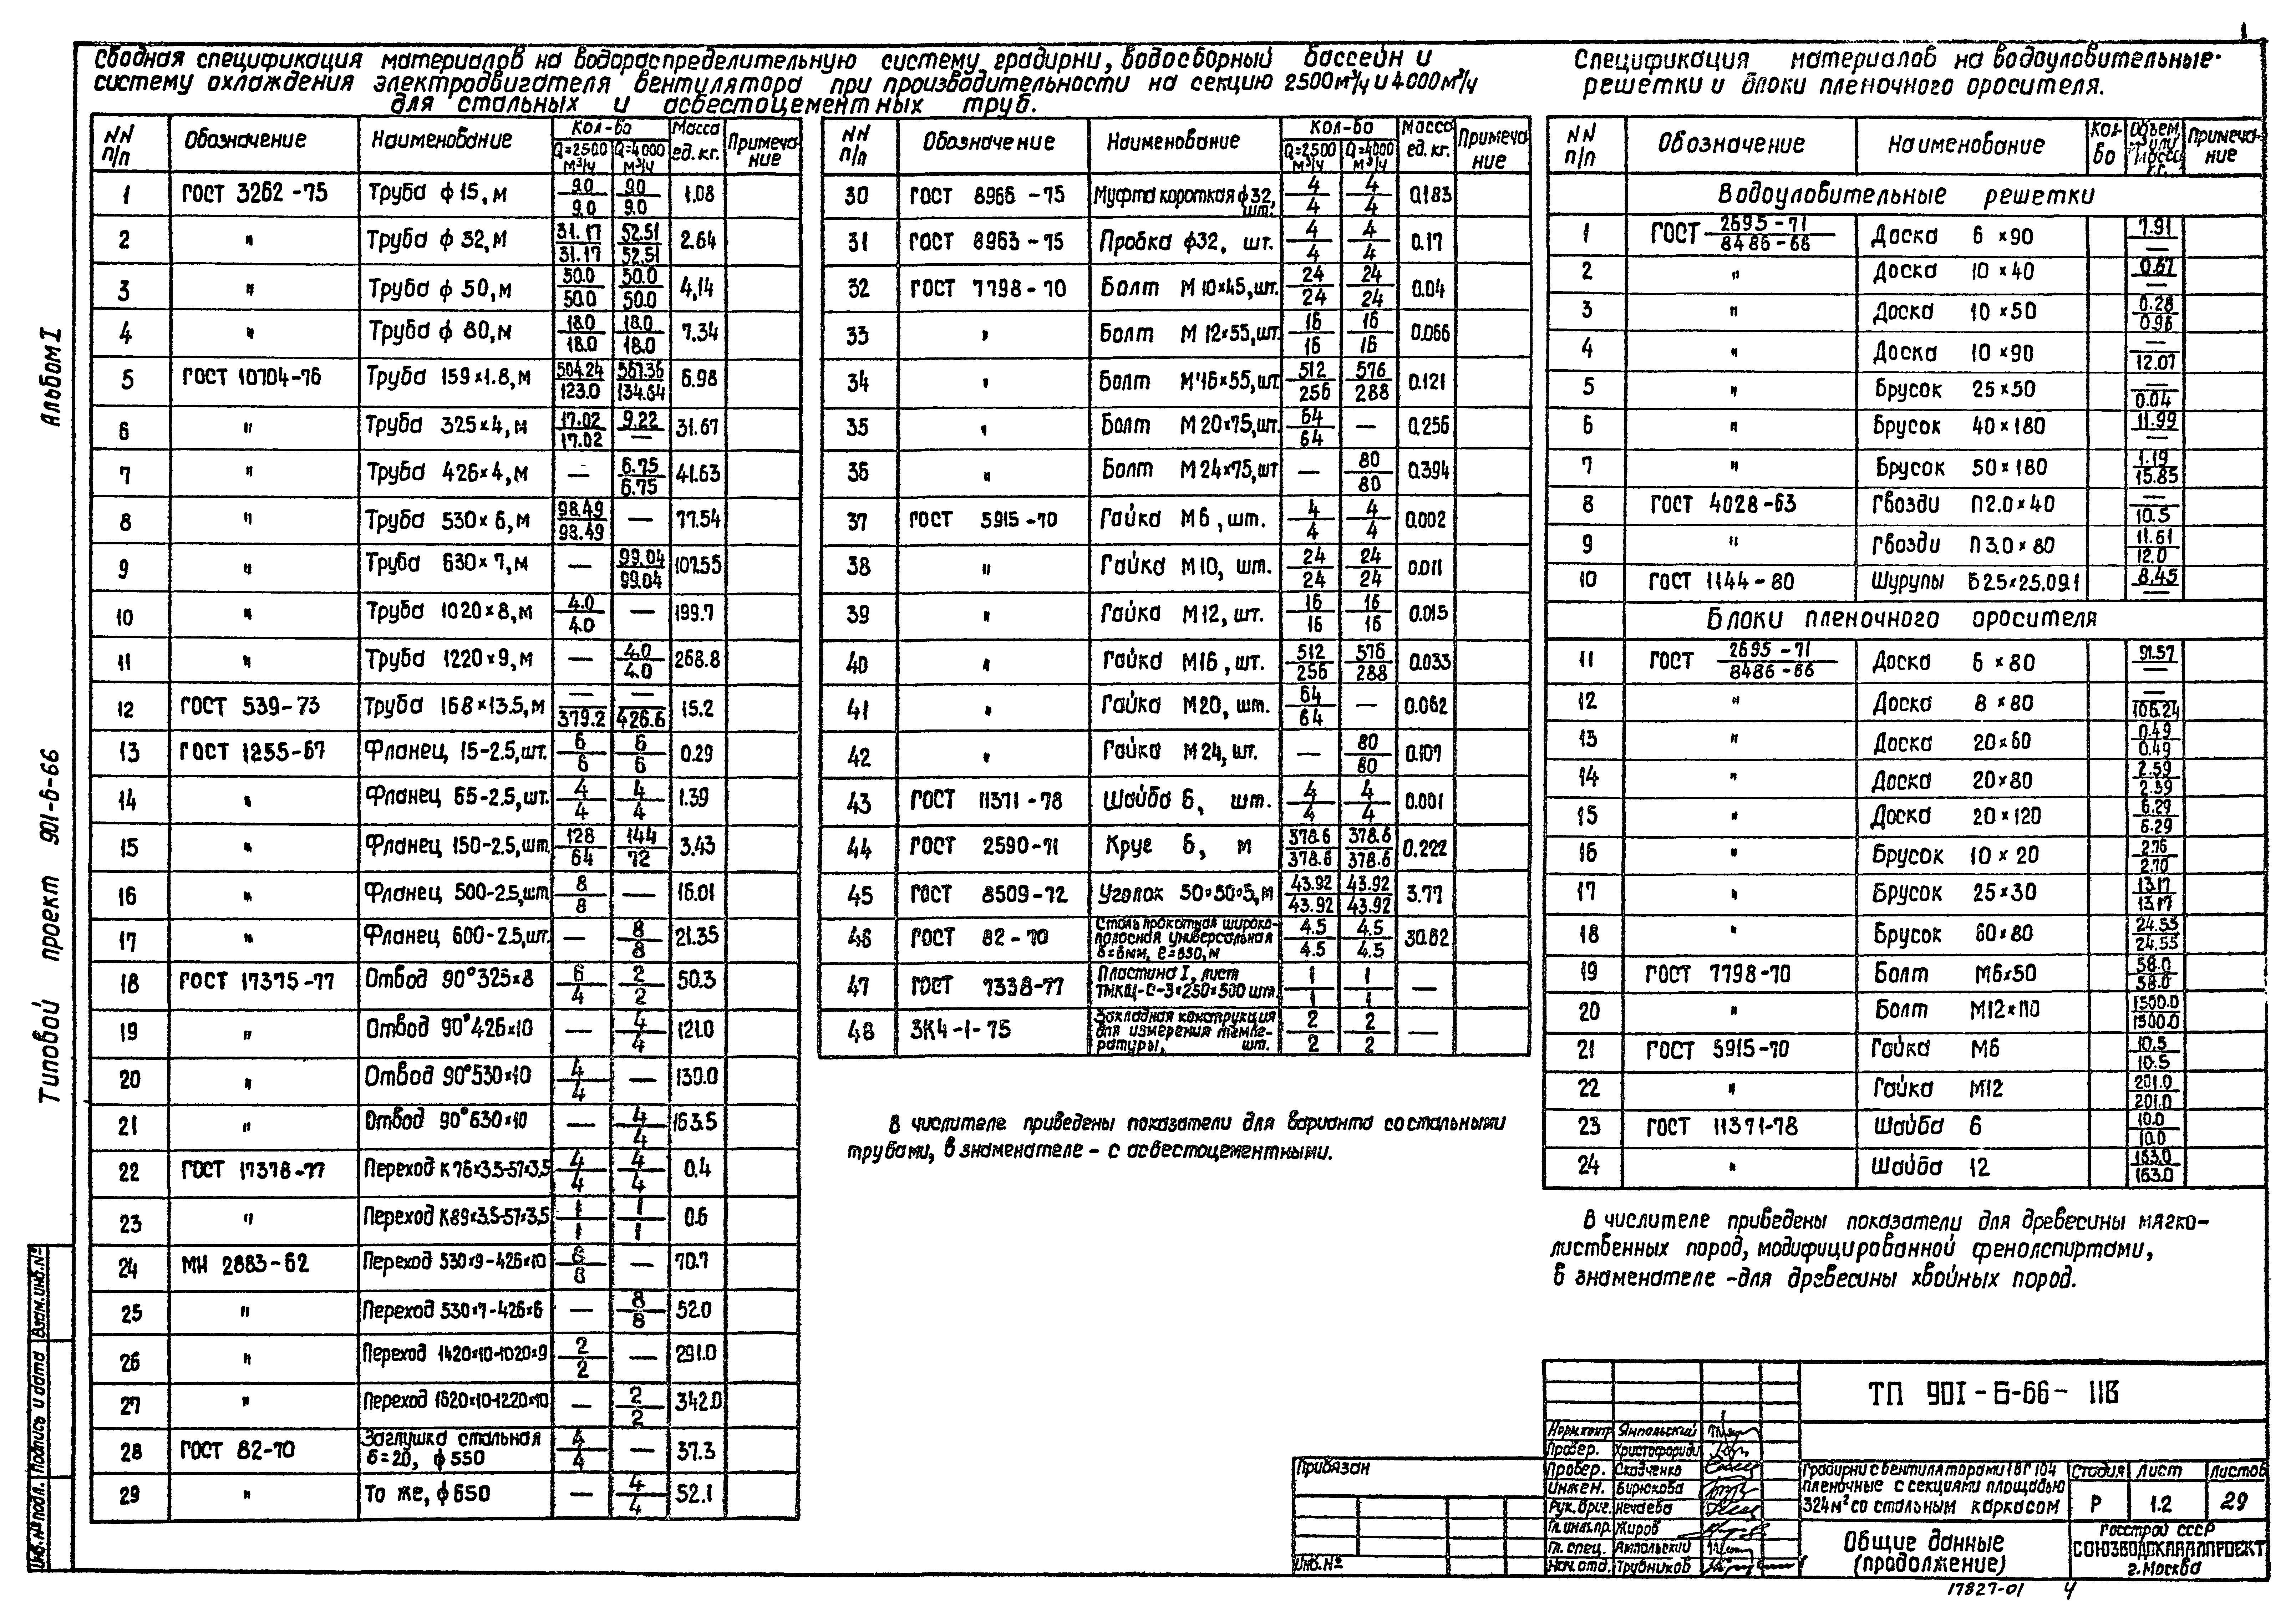 1
Сводная спецификация материалов на водораспределительную систему градирни, водосборный бассейн и
систему охлаждения электродвигателя вентилятора при производительности на секцию 2500м³/ч и 4000м³/ч
для стальных и асбестоцементных труб.
NN п/п | Обозначение | Наименование | Кол-во Q=2500 м³/ч | Q=4000 м³/ч | Масса ед.кг. | Примечание
1 ГОСТ 3262-75 Труба ф 15, м 9.0/9.0 9.0/9.0 1.08
2 " Труба ф 32, м 31.17/31.17 52.51/52.51 2.64
3 " Труба ф 50, м 50.0/50.0 50.0/50.0 4,14
4 " Труба ф 80, м 18.0/18.0 18.0/18.0 7.34
5 ГОСТ 10704-76 Труба 159×1.8, м 504.24/123.0 567.36/134.64 6.98
6 " Труба 325×4, м 17.02/17.02 9.22/— 31.67
7 " Труба 426×4, м — 6.75/6.75 41.63
8 " Труба 530×6, м 98.49/98.49 — 77.54
9 " Труба 630×7, м — 99.04/99.04 107.55
10 " Труба 1020×8, м 4.0/4.0 — 199.7
11 " Труба 1220×9, м — 4.0/4.0 268.8
12 ГОСТ 539-73 Труба 168×13.5, м —/379.2 —/426.6 15.2
13 ГОСТ 1255-67 Фланец 15-2.5, шт. 6/6 6/6 0.29
14 " Фланец 65-2.5, шт. 4/4 4/4 1.39
15 " Фланец 150-2.5, шт. 128/64 144/72 3.43
16 " Фланец 500-2.5, шт 8/8 — 16.01
17 " Фланец 600-2.5, шт. — 8/8 21.35
18 ГОСТ 17375-77 Отвод 90° 325×8 6/4 2/2 50.3
19 " Отвод 90° 426×10 — 4/4 121.0
20 " Отвод 90° 530×10 4/4 — 130.0
21 " Отвод 90° 630×10 — 4/4 163.5
22 ГОСТ 17378-77 Переход К 76×3.5-57×3.5 4/4 4/4 0.4
23 " Переход К89×3.5-57×3.5 1/1 1/1 0.6
24 МН 2883-62 Переход 530×9-426×10 8/8 — 70.7
25 " Переход 530×7-426×6 — 8/8 52.0
26 " Переход 1420×10-1020×9 2/2 — 291.0
27 " Переход 1620×10-1220×10 — 2/2 342.0
28 ГОСТ 82-70 Заглушка стальная δ=20, ф 550 4/4 — 37.3
29 " То же, ф 650 — 4/4 52.1
NN п/п | Обозначение | Наименование | Кол-во Q=2500 м³/ч | Q=4000 м³/ч | Масса ед.кг. | Примечание
30 ГОСТ 8966-75 Муфта короткая ф32, шт. 4/4 4/4 0.183
31 ГОСТ 8963-75 Пробка ф32, шт. 4/4 4/4 0.17
32 ГОСТ 7798-70 Болт М 10×45, шт. 24/24 24/24 0.04
33 " Болт М 12×55, шт. 16/16 16/16 0.066
34 " Болт М 16×55, шт. 512/256 576/288 0.121
35 " Болт М 20×75, шт. 64/64 — 0.256
36 " Болт М 24×75, шт — 80/80 0.394
37 ГОСТ 5915-70 Гайка М6, шт. 4/4 4/4 0.002
38 " Гайка М10, шт. 24/24 24/24 0.011
39 " Гайка М12, шт. 16/16 16/16 0.015
40 " Гайка М16, шт. 512/256 576/288 0.033
41 " Гайка М20, шт. 64/64 — 0.062
42 " Гайка М24, шт. — 80/80 0.107
43 ГОСТ 11371-78 Шайба 6, шт. 4/4 4/4 0.001
44 ГОСТ 2590-71 Круг 6, м 378.6/378.6 378.6/378.6 0.222
45 ГОСТ 8509-72 Уголок 50×50×5, м 43.92/43.92 43.92/43.92 3.77
46 ГОСТ 82-70 Сталь прокатная широкополосная универсальная δ=6мм, ℓ=650, м 4.5/4.5 4.5/4.5 30.62
47 ГОСТ 7338-77 Пластина I, лист ТМКЩ-С-3×250×500 шт. 1/1 1/1 —
48 ЗК4-1-75 Закладная конструкция для измерения температуры, шт. 2/2 2/2 —
В числителе приведены показатели для варианта со стальными
трубами, в знаменателе - с асбестоцементными.
Спецификация материалов на водоуловительные
решетки и блоки пленочного оросителя.
NN п/п | Обозначение | Наименование | Кол-во | Объем, м³ или масса кг. | Примечание
Водоуловительные решетки
1 ГОСТ 2695-71/8486-66 Доска 6×90 7.91/—
2 " Доска 10×40 0.67/—
3 " Доска 10×50 0.28/0.96
4 " Доска 10×90 —/12.07
5 " Брусок 25×50 —/0.04
6 " Брусок 40×180 11.99/—
7 " Брусок 50×180 1.19/15.85
8 ГОСТ 4028-63 Гвозди П2.0×40 —/10.5
9 " Гвозди П3.0×80 11.61/12.0
10 ГОСТ 1144-80 Шурупы Б2.5×25.091 8.45/—
Блоки пленочного оросителя
11 ГОСТ 2695-71/8486-66 Доска 6×80 91.57/—
12 " Доска 8×80 —/106.24
13 " Доска 20×60 0.49/0.49
14 " Доска 20×80 2.59/2.59
15 " Доска 20×120 6.29/6.29
16 " Брусок 10×20 2.76/2.70
17 " Брусок 25×30 13.17/13.17
18 " Брусок 60×80 24.55/24.55
19 ГОСТ 7798-70 Болт М6×50 58.0/58.0
20 " Болт М12×110 1500.0/1500.0
21 ГОСТ 5915-70 Гайка М6 10.5/10.5
22 " Гайка М12 201.0/201.0
23 ГОСТ 11371-78 Шайба 6 10.0/10.0
24 " Шайба 12 163.0/163.0
В числителе приведены показатели для древесины мягко-
лиственных пород, модифицированной фенолспиртами,
в знаменателе - для древесины хвойных пород.
Альбом I
Типовой проект 901-6-66
Инв.№ подл. Подпись и дата Взам.инв.№
Привязан
Инв.№
Норм.контр Ямпольский
Провер. Христофориди
Провер. Скадченко
Инжен. Бирюкова
Рук.бриг. Нечаева
Гл.инж.пр. Жиров
Гл. спец. Ямпольский
Нач.отд. Трубников
ТП 901-6-66- НВ
Градирни с вентиляторами 1ВГ 104
пленочные с секциями площадью
324м² со стальным каркасом
Стадия Лист Листов
Р 1.2 29
Общие данные
(продолжение)
Госстрой СССР
СОЮЗВОДОКАНАЛПРОЕКТ
г.Москва
17827-01 4